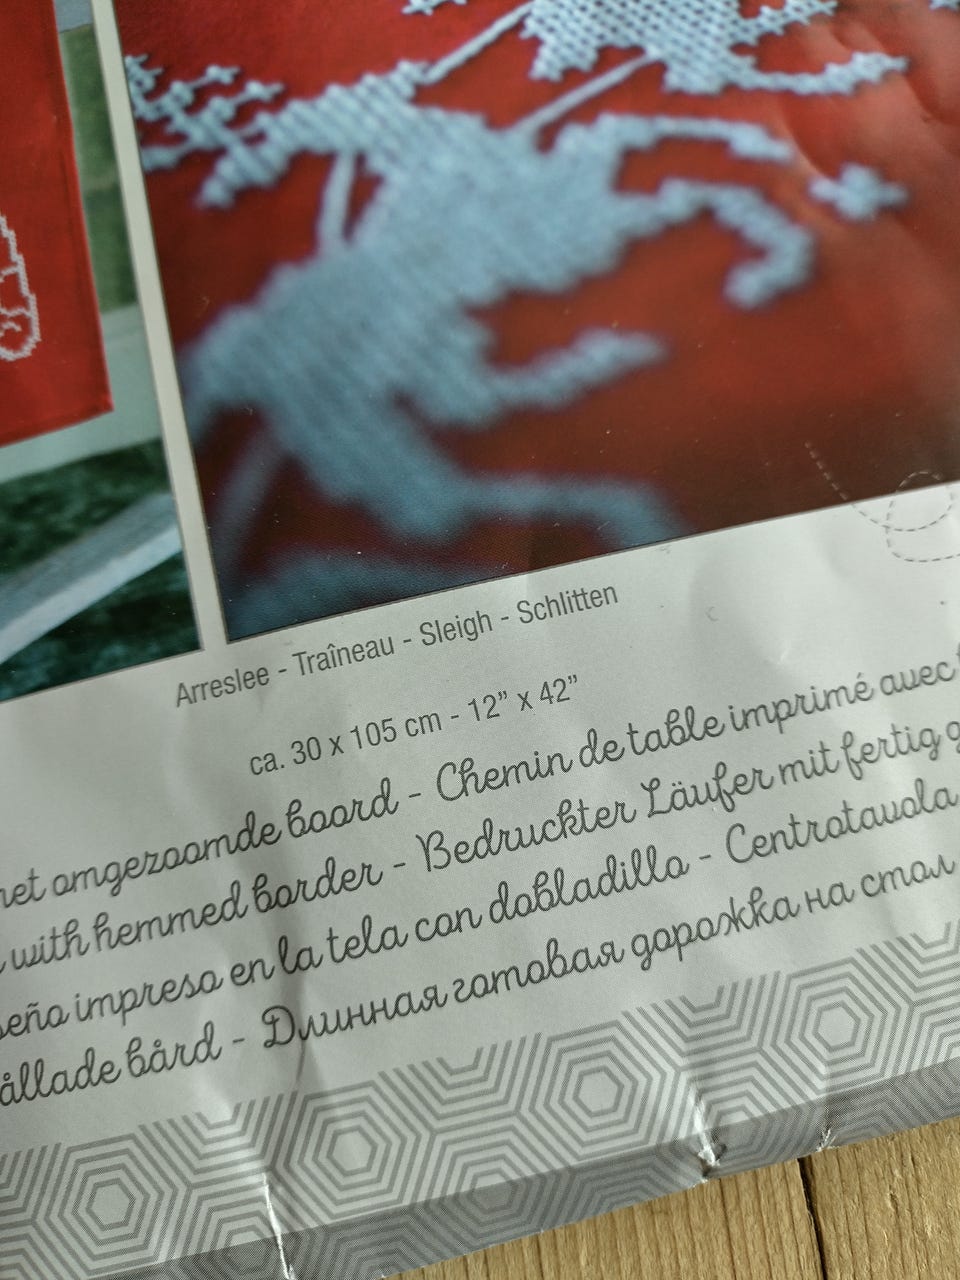 Arreslee - Traîneau - Sleigh - Schlitten
ca. 30 x 105 cm - 12” x 42”
omgezoomde boord - Chemin de table imprimé avec
with hemmed border - Bedruckter Läufer mit fertig
impreso en la tela con dobladillo - Centrotavola
bård - Длинная готовая дорожка на стол